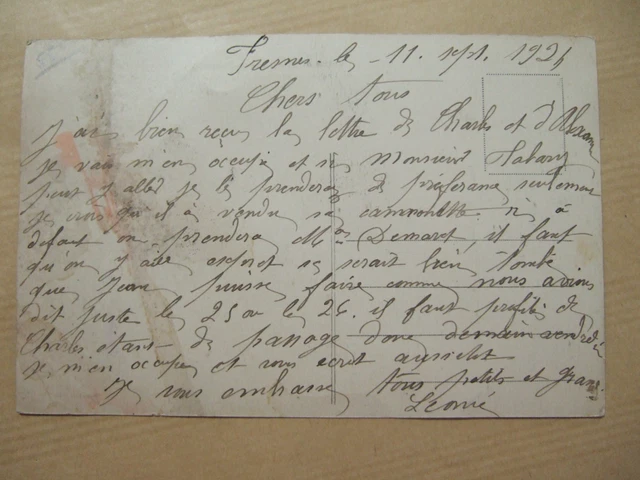 Fresnes le 11. sept. 1924
Chers tous
j'ai bien recus la lettre de Charles et d'
je vais m'en occupé et si Monsieur Tabary
peut y allér je le prenderai de préferance seulement
je crois qu'il à vendu sa camionette. si à
défaut on prendera Demaret, il faut
qu'on y aille serait bien tombé
que Jean puisse faire comme nous avions
dit juste le 25 ou le 26. il faut profité de
Charles étant de passage donc demain vendredi
je m'en occupe et vous écrit aussitot
Je vous embrasse tous petits et grands
Léonie